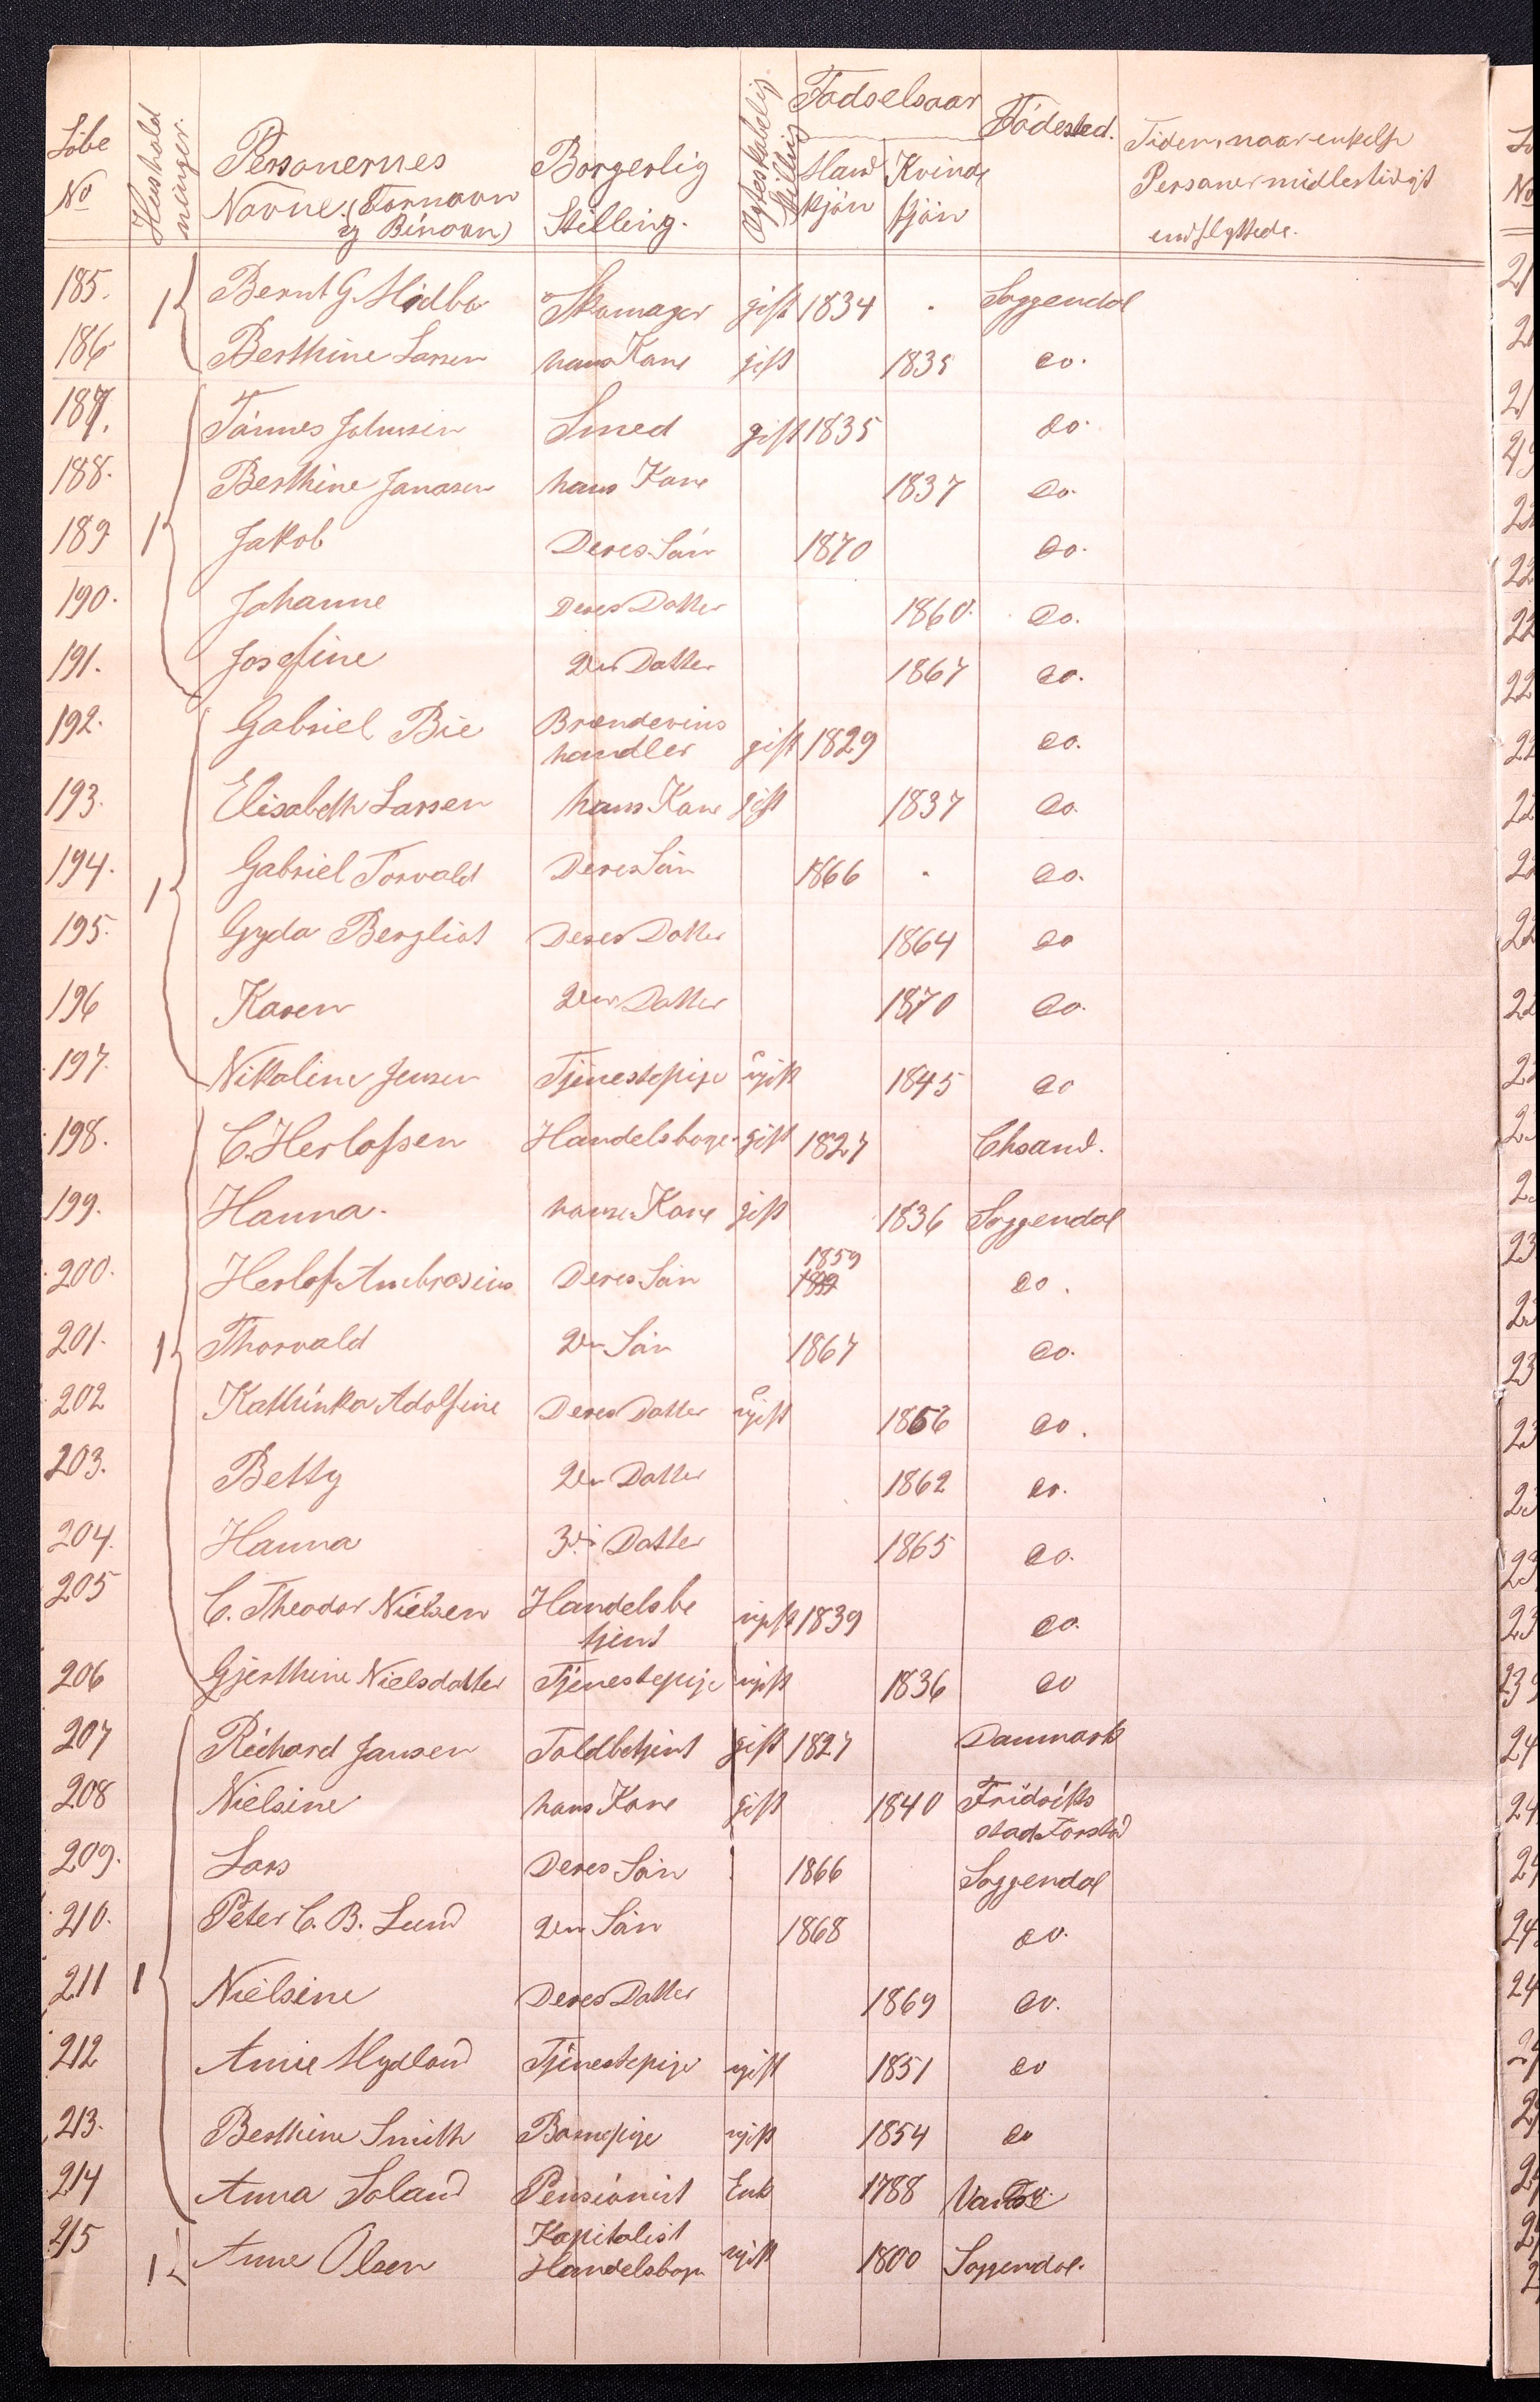 Löbe No Hushold ninger. Personernes Navne. (Fornavn og Binavn) Borgerlig Stilling. Ægteskabelig Stilling Födselsaar Hand kjön Kvinde kjön Födested. Tiden, naar enkelte Personer midlertidigt indflyttede.
185. 1 Bernt G. Mödbo Skomager gift 1834 . Soggendal
186 Berthine Larsen hans Kone gift 1835 do.
187. Tönnes Johnsen Smed gift 1835 do.
188. Berthine Jonasen hans Kone 1837 do.
189 1 Jakob Deres Sön 1870 do.
190. Johanne Deres Datter 1860. do.
191. Josefine 2den Datter 1867 do.
192. Gabriel Bie Brændevins handler gift 1829 do.
193. Elisabeth Larsen hans Kone gift 1837 do.
194. 1 Gabriel Torvald Deres Sön 1866 . do.
195. Gyda Bergliot Deres Datter 1864 do
196 Karen 2den Datter 1870 do.
197. Nikoline Jensen Tjenestepige ugift 1845 do
198. C. Herlofsen Handelsborger gift 1827 Chsand.
199. Hanna. hans Kone gift 1836 Soggendal
200. Herlof Ambrosius Deres Sön 1859 do.
201. 1 Thorvald 2den Sön 1867 do.
202 Kathinka Adolfine Deres Datter ugift 1856 do.
203. Betty 2den Datter 1862 do.
204. Hanna 3die Datter 1865 do.
205 C. Theodor Nielsen Handelsbe tjent ugift 1839 do.
206 Gjerthine Nielsdatter Tjenestepige ugift 1836 do
207 Richard Jansen Toldbetjent gift 1827 Danmark
208 Nielsine hans Kone gift 1840 Fridriks stad Forstad
209. Lars Deres Sön 1866 Soggendal
210. Peter C. B. Lund 2den Sön 1868 do.
211 1 Nielsine Deres Datter 1869 do.
212 Anne Mydland Tjenestepige ugift 1851 do
213. Berthine Smith Barnepige ugift 1854 do
214 Anna Soland Pensionist Enk 1788
215 1 Anne Olsen Kapitalist Handelsborger ugift 1800 Soggendal.